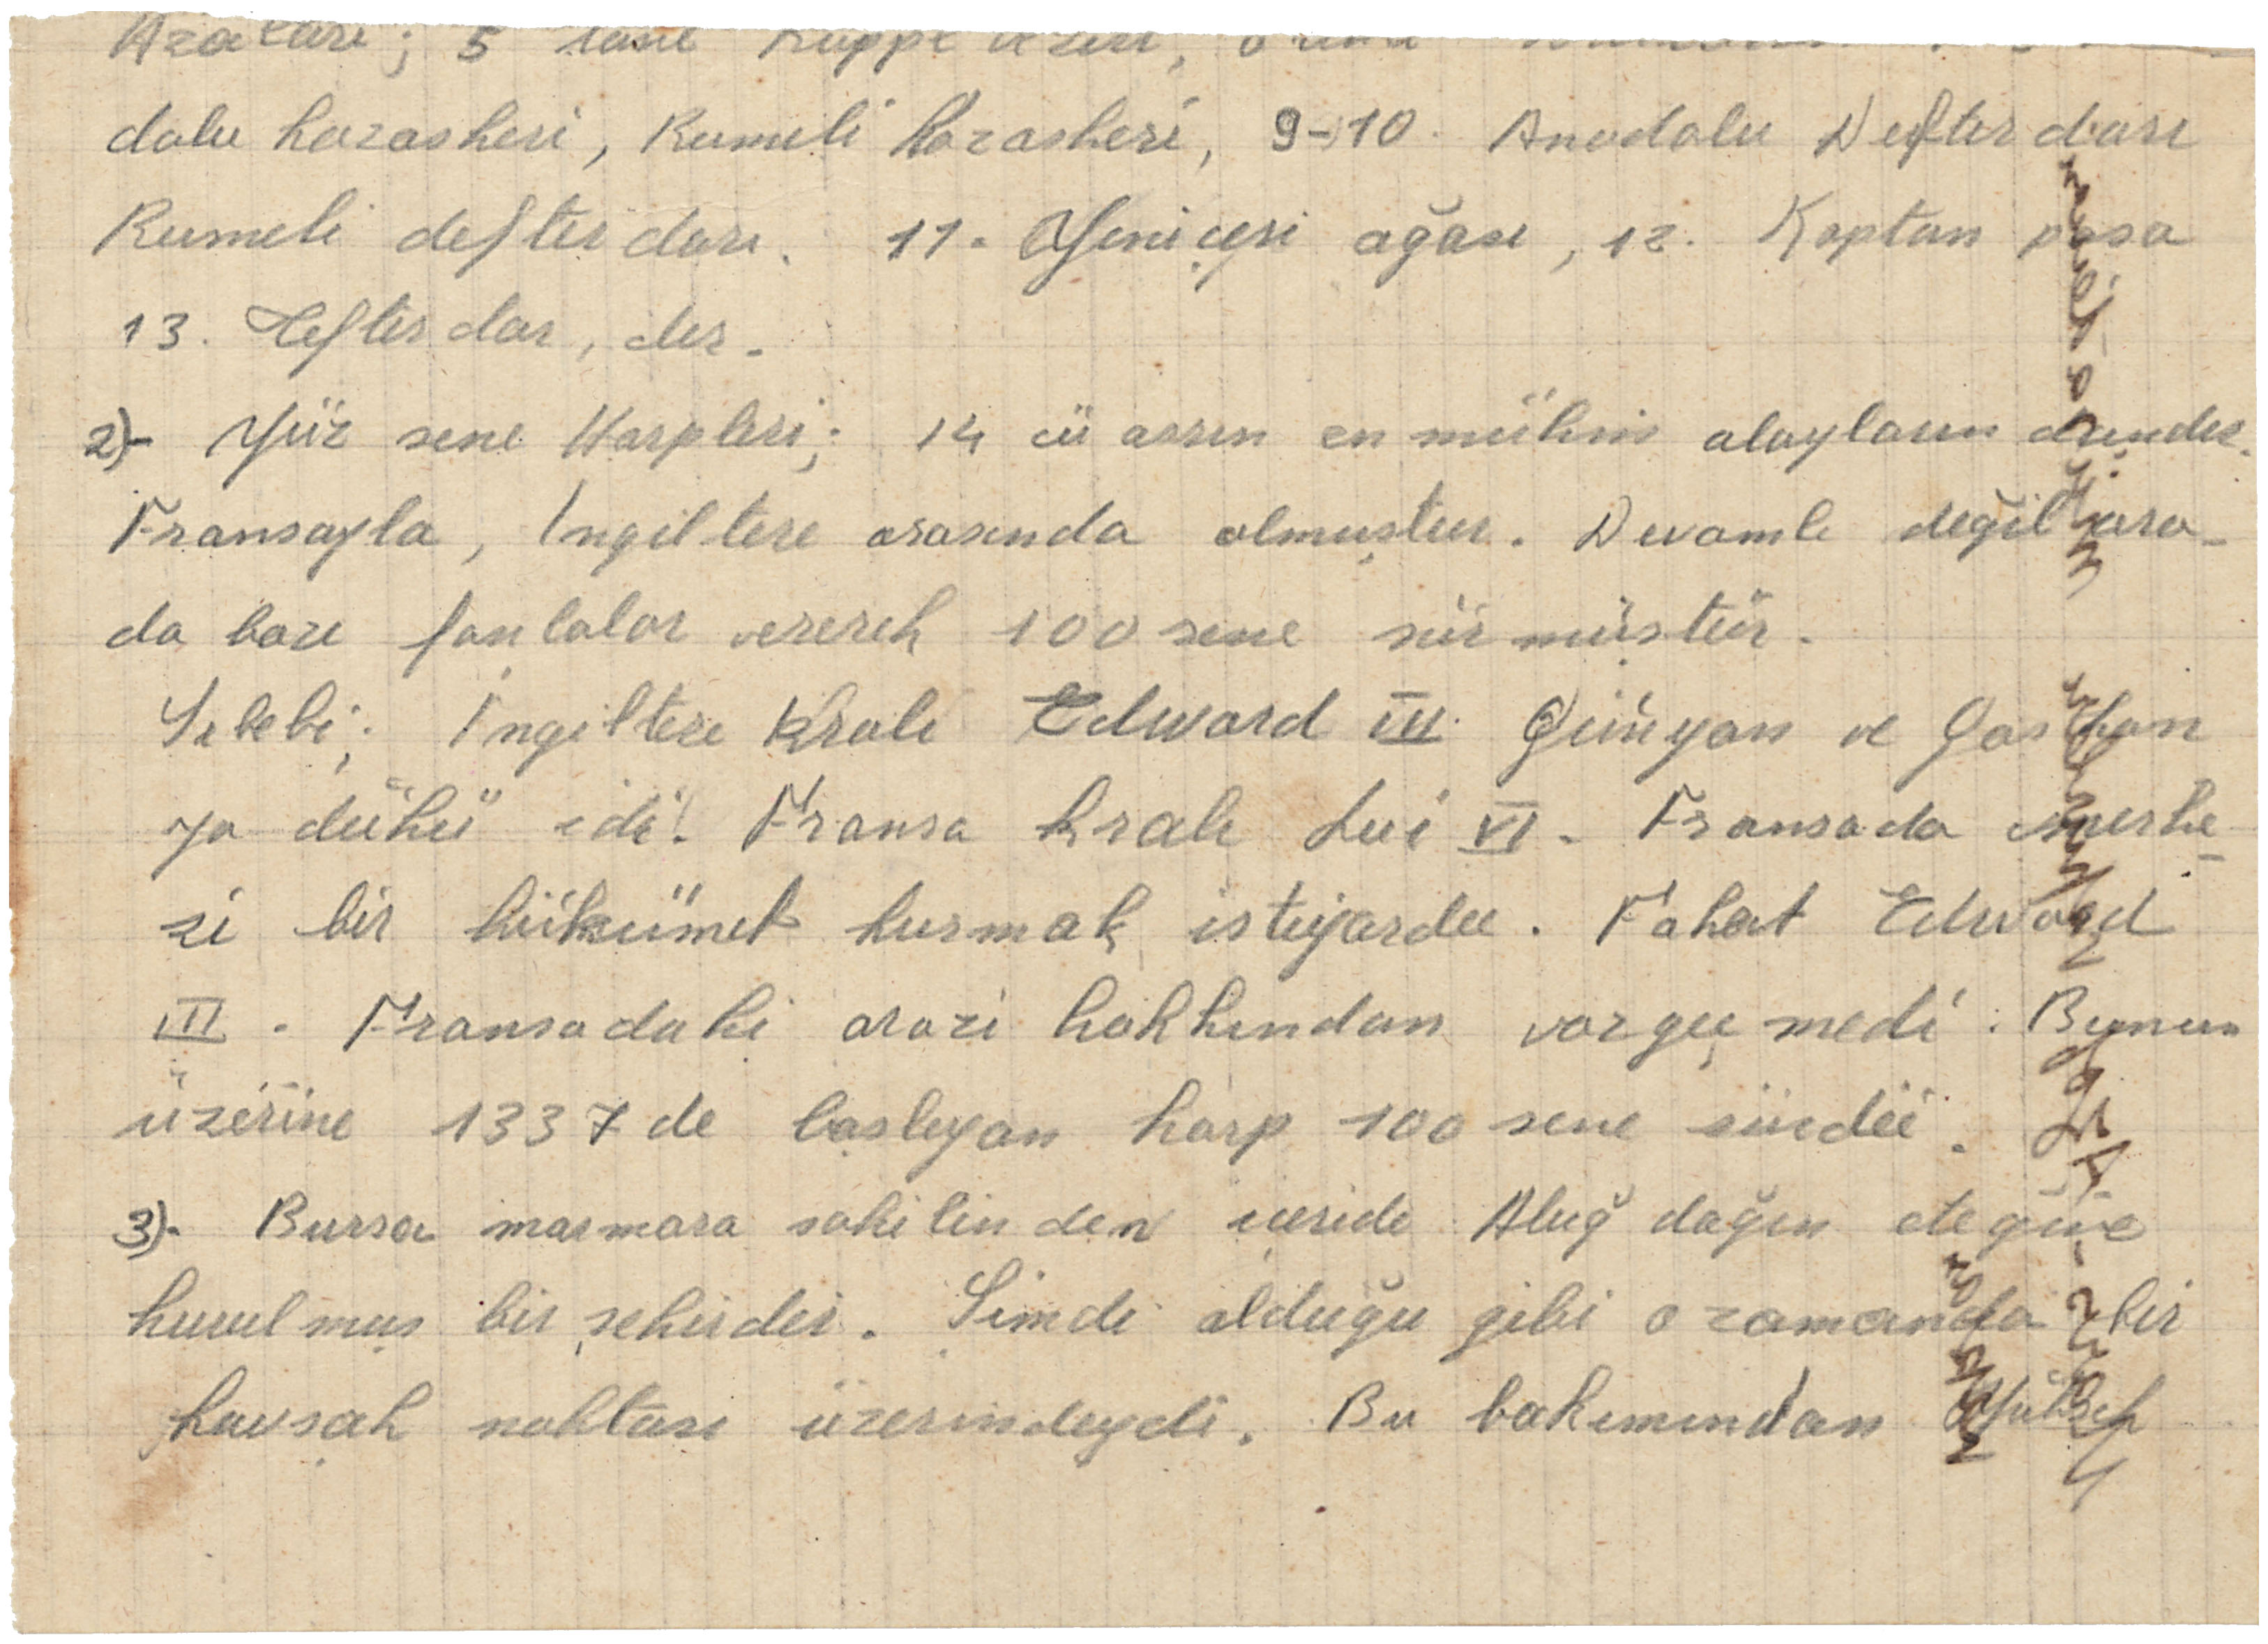 Azaları; 5 tane kuppe veziri,
dolu kazaskeri, Rumeli kazaskeri, 9-10. Anadolu Defterdarı
Rumeli defterdarı. 11. Yeniçeri ağası, 12. Kaptan paşa
13. Defterdar, dır.
2)- Yüz sene Harpleri; 14 cü asrın en mühim olayların dandır.
Fransayla, İngiltere arasında olmuştur. Devamlı değil ara-
da bazı fasılalar vererek 100 sene sürmüştür.
Sebebi; İngiltere Kralı Edward III Güüyan ve Gaskon
ya dükü idi. Fransa kralı Lui VI. Fransada merke-
zi bir hükümet kurmak istiyordu. Fakat Edward
III. Fransadaki arazi hakkından vazgeçmedi. Bunun
üzerine 1337 de başlıyan harp 100 sene sürdü.
3)- Bursa marmara sahilinden içeride Aluğ dağın eteğine
kurulmuş bir şehirdir. Şimdi olduğu gibi o zamanda bir
kavşak noktası üzerindeydi. Bu bakımından Yüksek